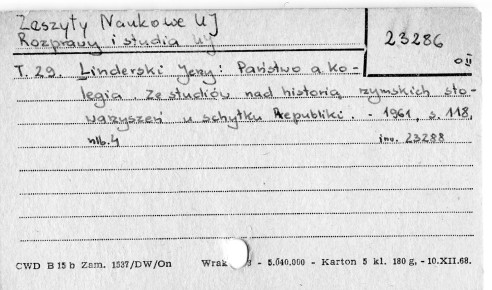 Zeszyty Naukowe UJ
Rozprawy i studia UJ
23286
T. 29. Linderski Jerzy: Państwo a ko-
legia. Ze studiów nad historią rzymskich sto-
warzyszeń u schyłku Republiki. - 1961, s. 118,
nlb. 4
inw. 23288
CWD B 15 b Zam. 1537/DW/On - 5.040.000 - Karton 5 kl. 180 g, - 10.XII.68.